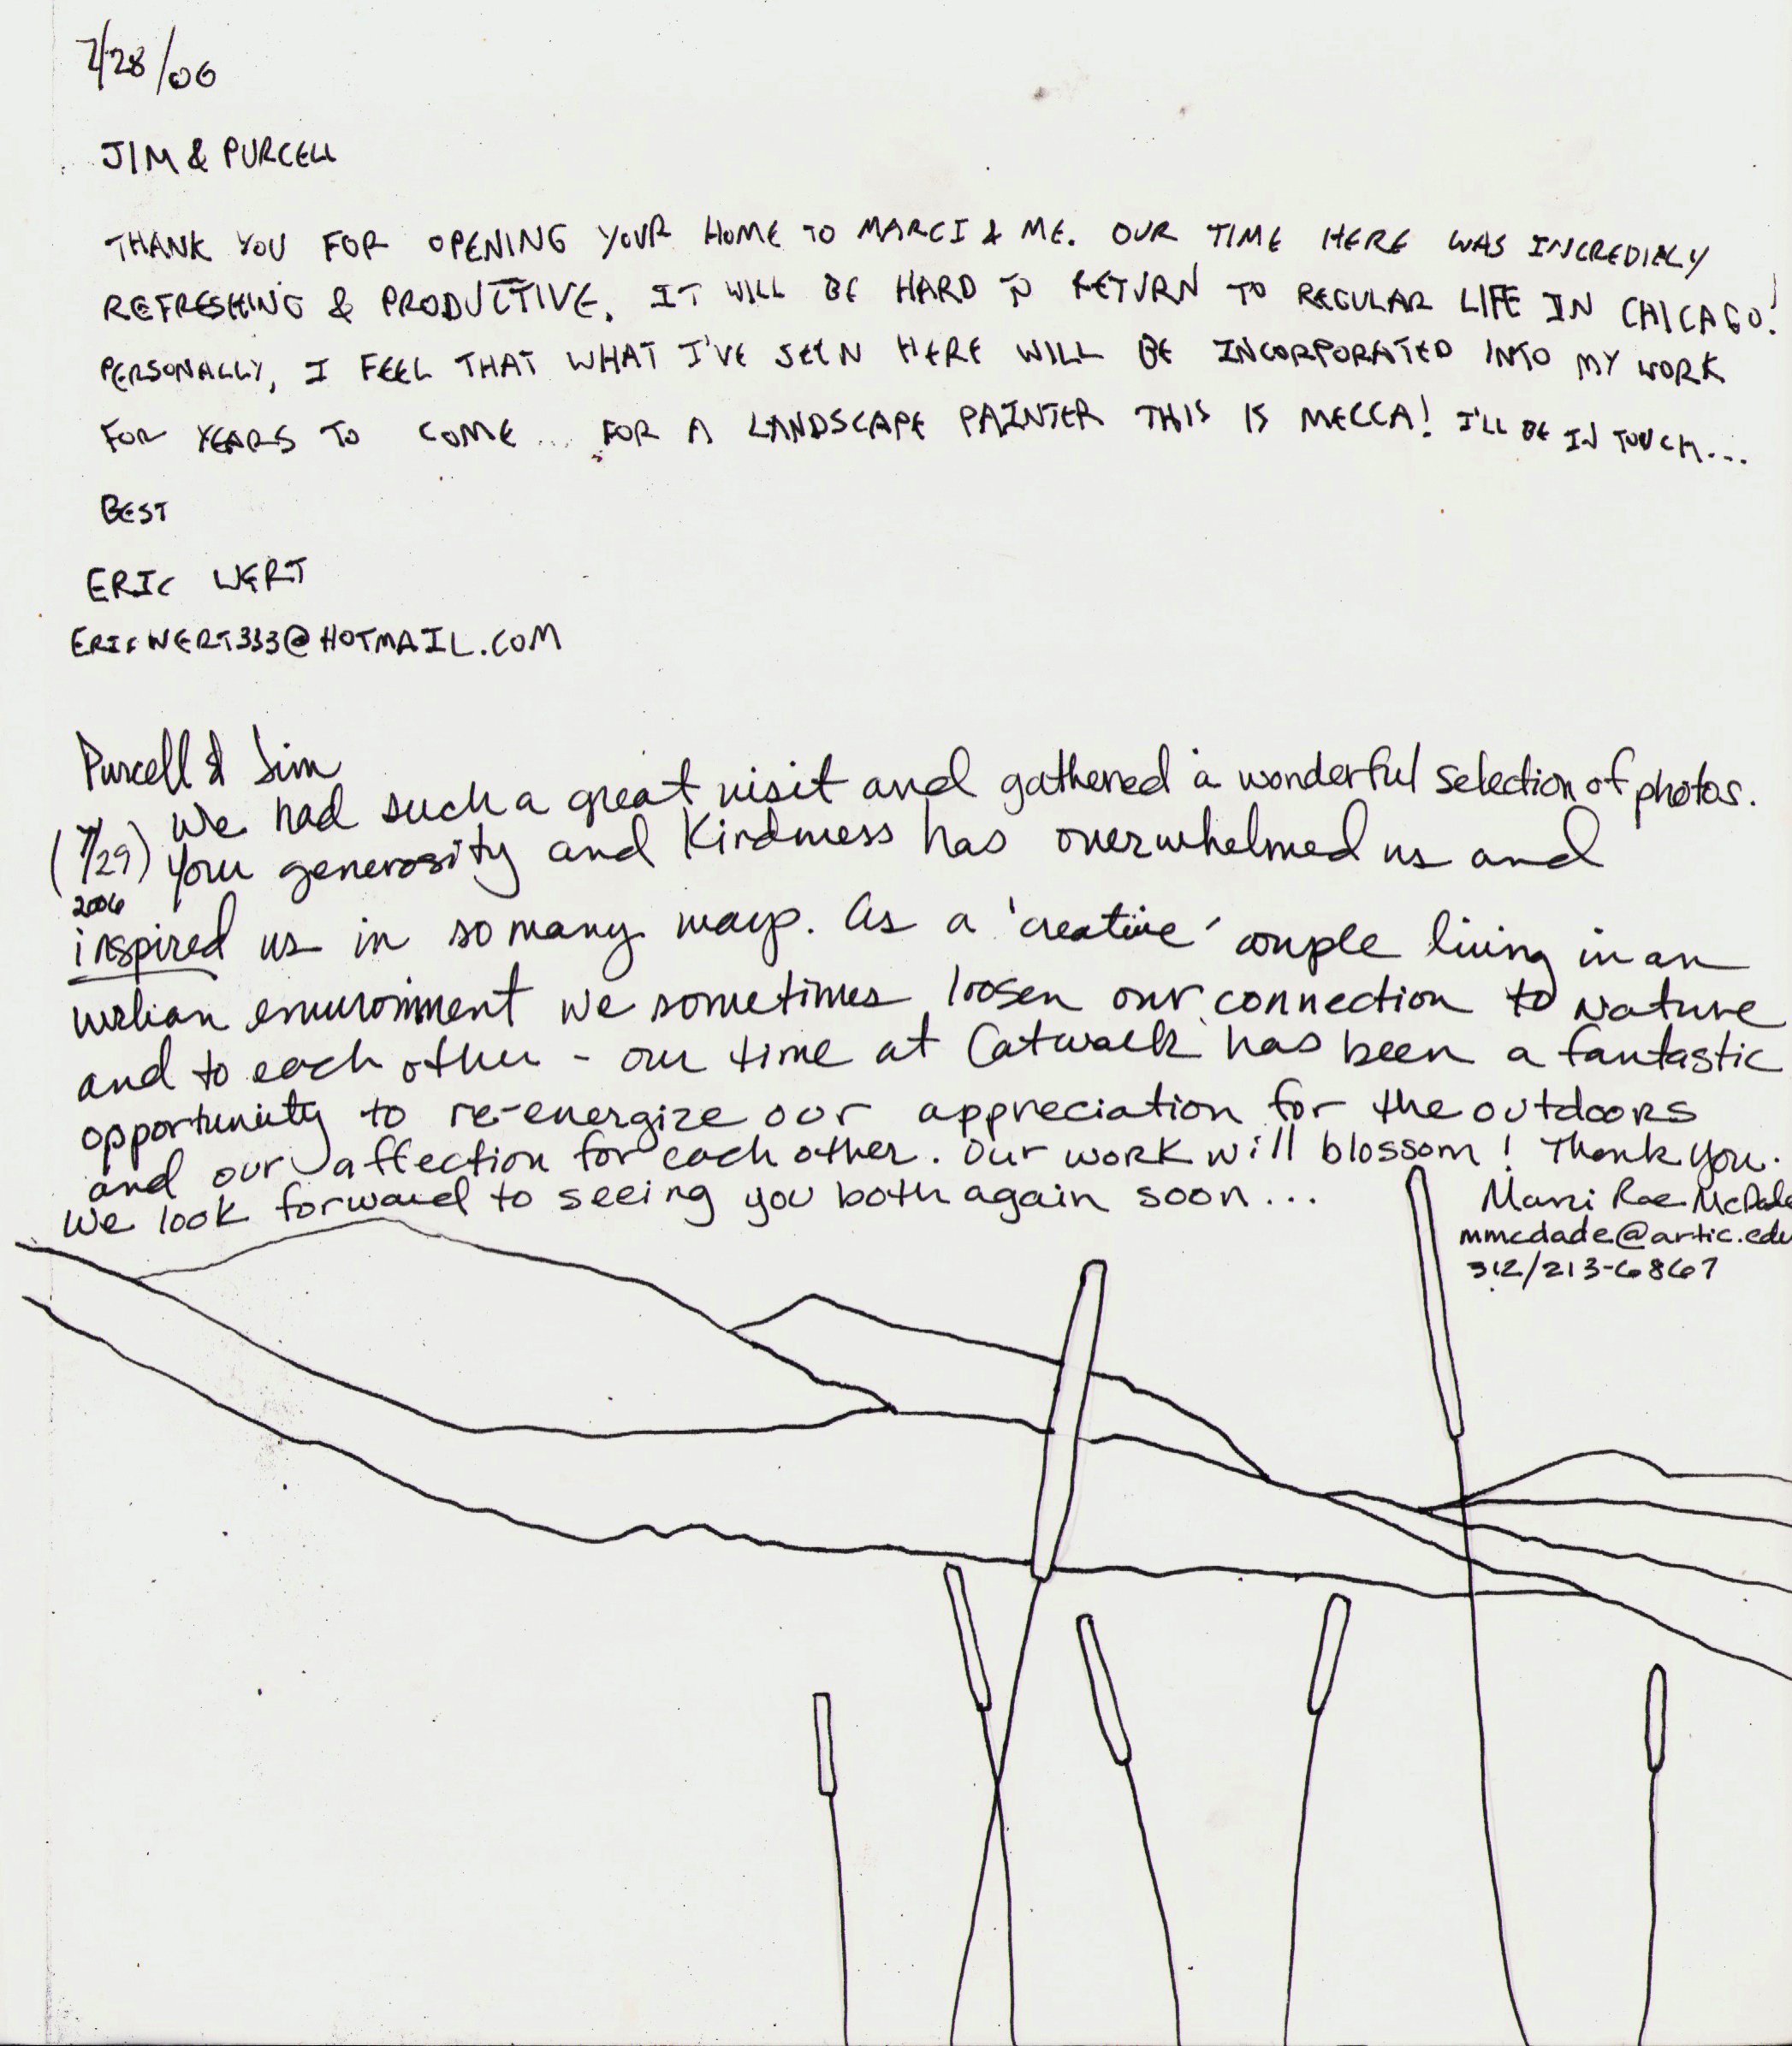 7/28/06
JIM & PURCELL
THANK YOU FOR OPENING YOUR HOME TO MARCI & ME. OUR TIME HERE WAS INCREDIBLY
REFRESHING & PRODUCTIVE. IT WILL BE HARD TO RETURN TO REGULAR LIFE IN CHICAGO!
PERSONALLY, I FEEL THAT WHAT I'VE SEEN HERE WILL BE INCORPORATED INTO MY WORK
FOR YEARS TO COME... FOR A LANDSCAPE PAINTER THIS IS MECCA! I'LL BE IN TOUCH...
BEST
ERIC WERT
ERICWERT333@HOTMAIL.COM
Purcell & Jim
We had such a great visit and gathered a wonderful selection of photos.
(7/29) Your generosity and Kindness has overwhelmed us and
2006
inspired us in so many ways. As a 'creative' couple living in an
urban environment we sometimes loosen our connection to nature
and to each other - our time at Catwalk has been a fantastic
opportunity to re-energize our appreciation for the outdoors
and our affection for each other. Our work will blossom! Thank you.
We look forward to seeing you both again soon...
Marci Rae McDade
mmcdade@artic.edu
312/213-6867